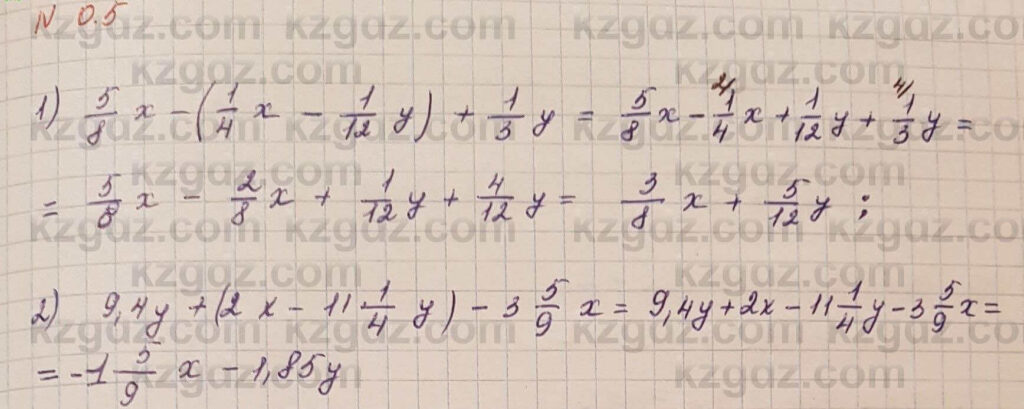 N 0.5
1) 5/8 x - (1/4 x - 1/12 y) + 1/3 y = 5/8 x - 2/ 1/4 x + 1/12 y + 4/ 1/3 y =
= 5/8 x - 2/8 x + 1/12 y + 4/12 y = 3/8 x + 5/12 y ;
2) 9,4y + (2x - 11 1/4 y) - 3 5/9 x = 9,4y + 2x - 11 1/4 y - 3 5/9 x =
= -1 5/9 x - 1,85y